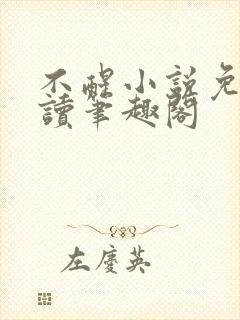 不醒小說免
讀筆趣閣
左慶英